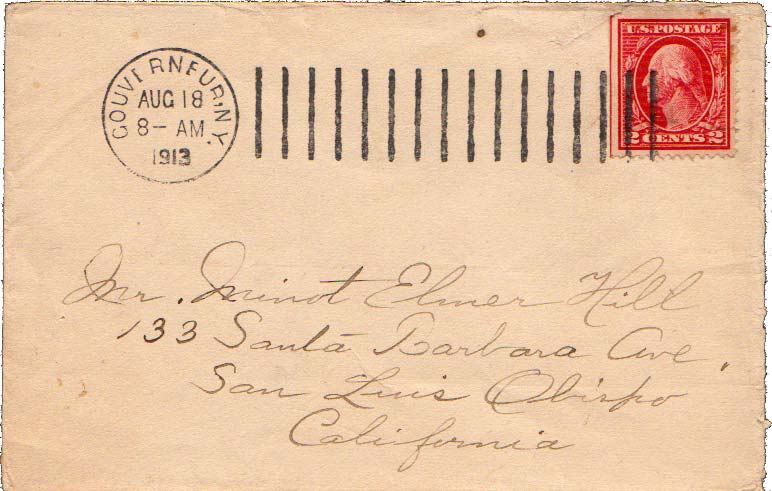 GOUVERNEUR, N.Y.
AUG 18
8- AM
1913
U.S. POSTAGE
2 CENTS 2
Mr. Minot Elmer Hill
133 Santa Barbara Ave.
San Luis Obispo
California